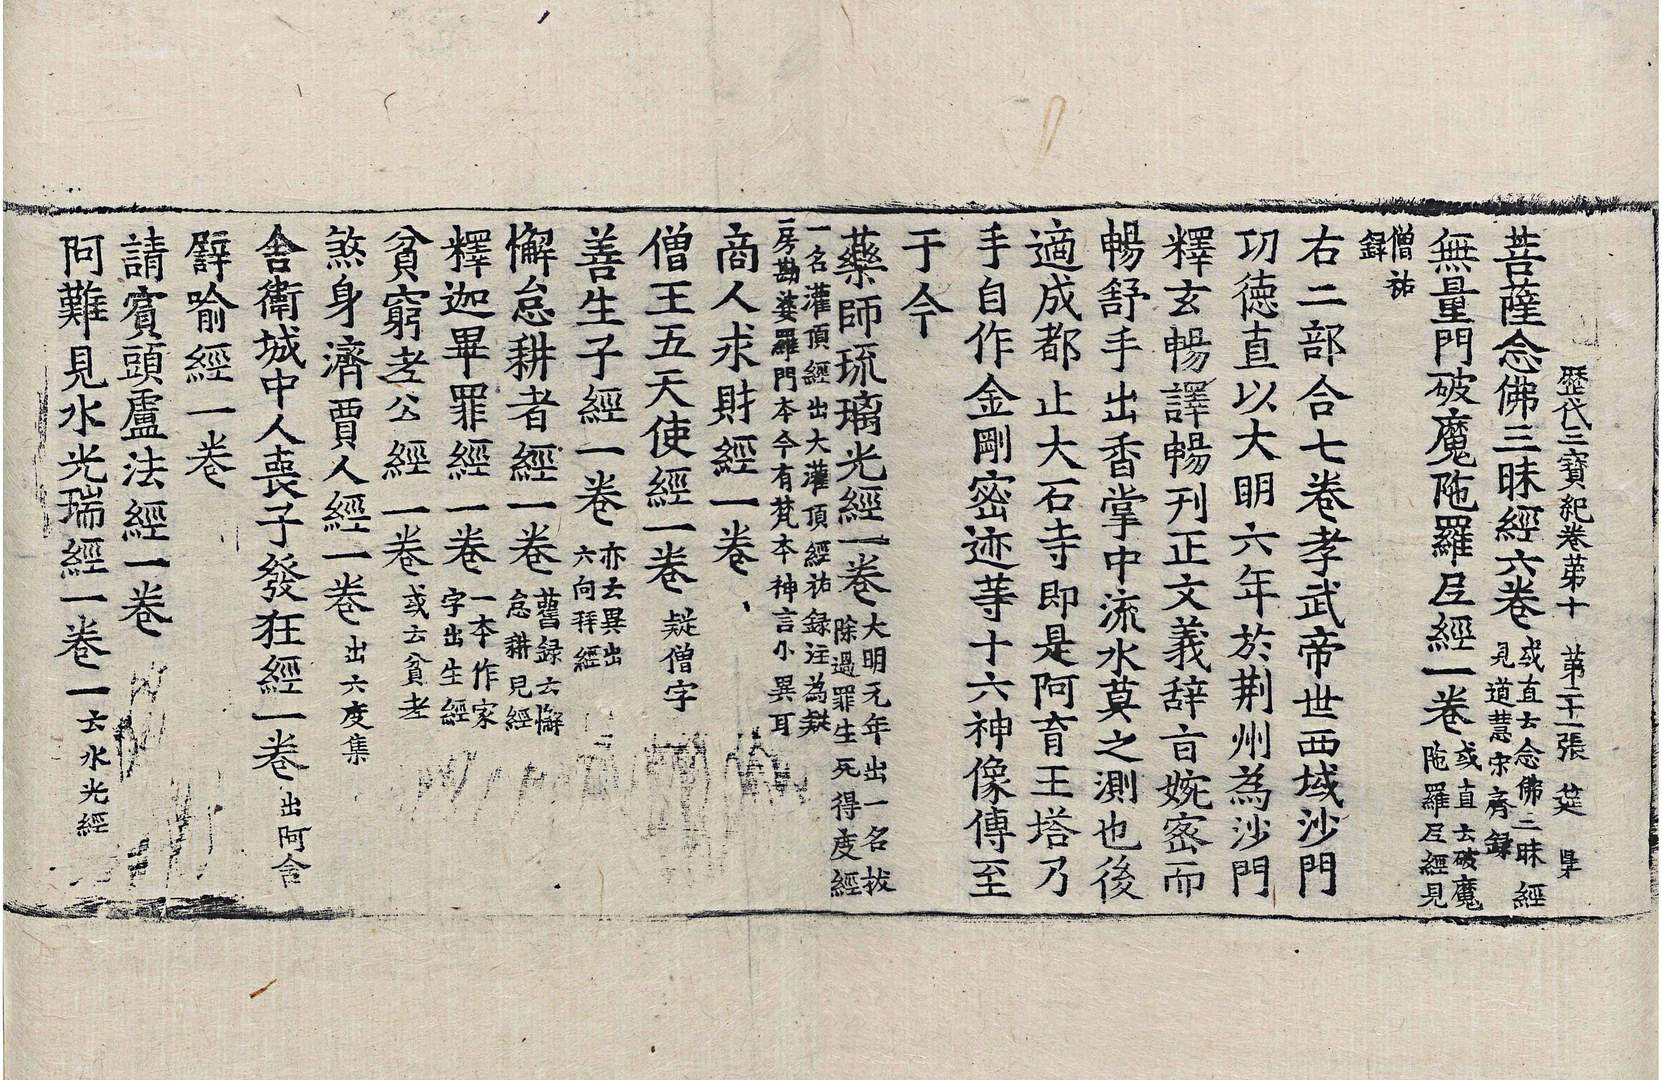 歷代三寶紀卷苐十 苐二十一張 筵
菩薩念佛三昧經六卷 或直云念佛三昧經 見道慧宋齊録
無量門破魔陁羅𡰱經一卷 或直云破魔 陁羅𡰱經見
僧祐 録
右二部合七卷孝武帝世西域沙門
㓛德直以大明六年於荆州為沙門
釋玄暢譯暢刊正文義辞㫖婉宻而
暢舒手出香掌中流水莫之測也後
適成都止大石寺即是阿育王塔乃
手自作金剛宻迹䓁十六神像傳至
于今
藥師琉璃光經一卷 大明元年出一名拔 除過罪生死得度經
一名灌頂經出大灌頂經祐録注為疑
房勘婆羅門本今有梵本神言小異耳
商人求財經一卷
僧王五天使經一卷 疑僧字
善生子經一卷 亦云異出 六向拜經
懈怠耕者經一卷 舊録云懈 怠耕兒經
釋迦畢罪經一卷 一本作家 字出生經
貧窮老公經一卷 或云貧老
煞身濟賈人經一卷 出六度集
舍衛城中人喪子發狂經一卷 出阿含
譬喻經一卷
請賓頭盧法經一卷
阿難見水光瑞經一卷 一云水光經